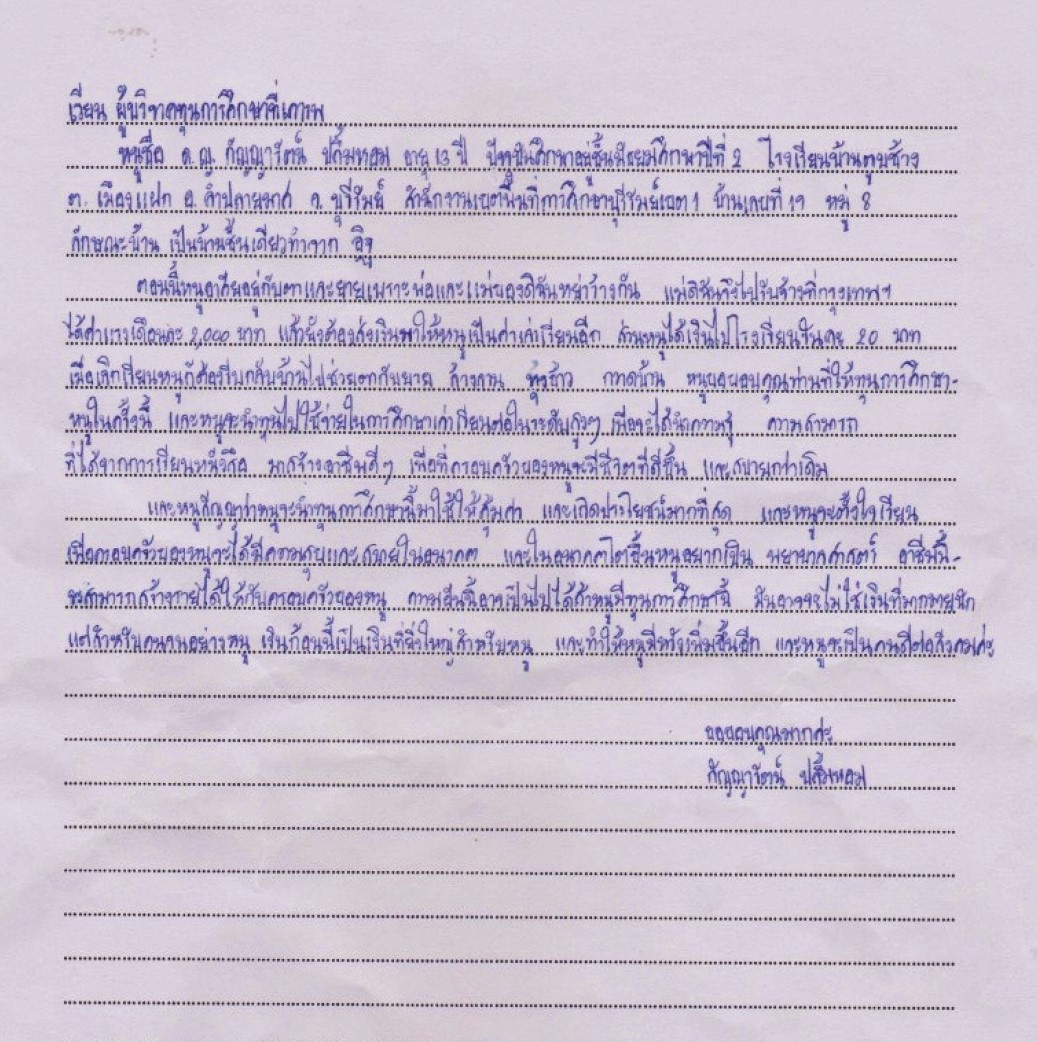 เรียน ผู้บริจาคทุนการศึกษาที่เคารพ
หนูชื่อ ด.ญ. กัญญารัตน์ ปลื้มหอม อายุ 13 ปี ปัจจุบันศึกษาอยู่ชั้นมัธยมศึกษาปีที่ 2 โรงเรียนบ้านตูบช้าง
ต. เมืองแฝก อ. ลำปลายมาศ จ. บุรีรัมย์ สำนักงานเขตพื้นที่การศึกษาบุรีรัมย์เขต 1 บ้านเลขที่ 19 หมู่ 8
ลักษณะบ้าน เป็นบ้านชั้นเดียวทำจาก อิฐ
ตอนนี้หนูอาศัยอยู่กับตาและยายเพราะพ่อและแม่ของดิฉันหย่าร้างกัน แม่ดิฉันจึงไปรับจ้างที่กรุงเทพฯ
ได้ค่าแรงเดือนละ 2,000 บาท แล้วยังต้องส่งเงินมาให้หนูเป็นค่าเล่าเรียนอีก ส่วนหนูได้เงินไปโรงเรียนวันละ 20 บาท
เมื่อเลิกเรียนหนูก็ต้องรีบกลับบ้านไปช่วยตากับยาย ล้างจาน หุงข้าว กวาดบ้าน หนูขอขอบคุณท่านที่ให้ทุนการศึกษา-
หนูในครั้งนี้ และหนูจะนำทุนไปใช้จ่ายในการศึกษาเล่าเรียนต่อในระดับสูงๆ เพื่อจะได้นำความรู้ ความสามารถ
ที่ได้จากการเรียนหนังสือ มาสร้างอาชีพดีๆ เพื่อที่ครอบครัวของหนูจะมีชีวิตที่ดีขึ้น และสบายกว่าเดิม
และหนูสัญญาว่าหนูจะนำทุนการศึกษานี้มาใช้ให้คุ้มค่า และเกิดประโยชน์มากที่สุด และหนูจะตั้งใจเรียน
เพื่อครอบครัวของหนูจะได้มีความสุขและสบายในอนาคต และในอนาคตโตขึ้นหนูอยากเป็น พยาบาลศาสตร์ อาชีพนี้-
จะสามารถสร้างรายได้ให้กับครอบครัวของหนู ความฝันนี้อาจเป็นไปได้ถ้าหนูมีทุนการศึกษานี้ มันอาจจะไม่ใช่เงินที่มากมายนัก
แต่สำหรับคนจนอย่างหนู เงินก้อนนี้เป็นเงินที่ยิ่งใหญ่สำหรับหนู และทำให้หนูมีหวังเพิ่มขึ้นอีก และหนูจะเป็นคนดีต่อสังคมค่ะ
ขอขอบคุณมากค่ะ
กัญญารัตน์ ปลื้มหอม